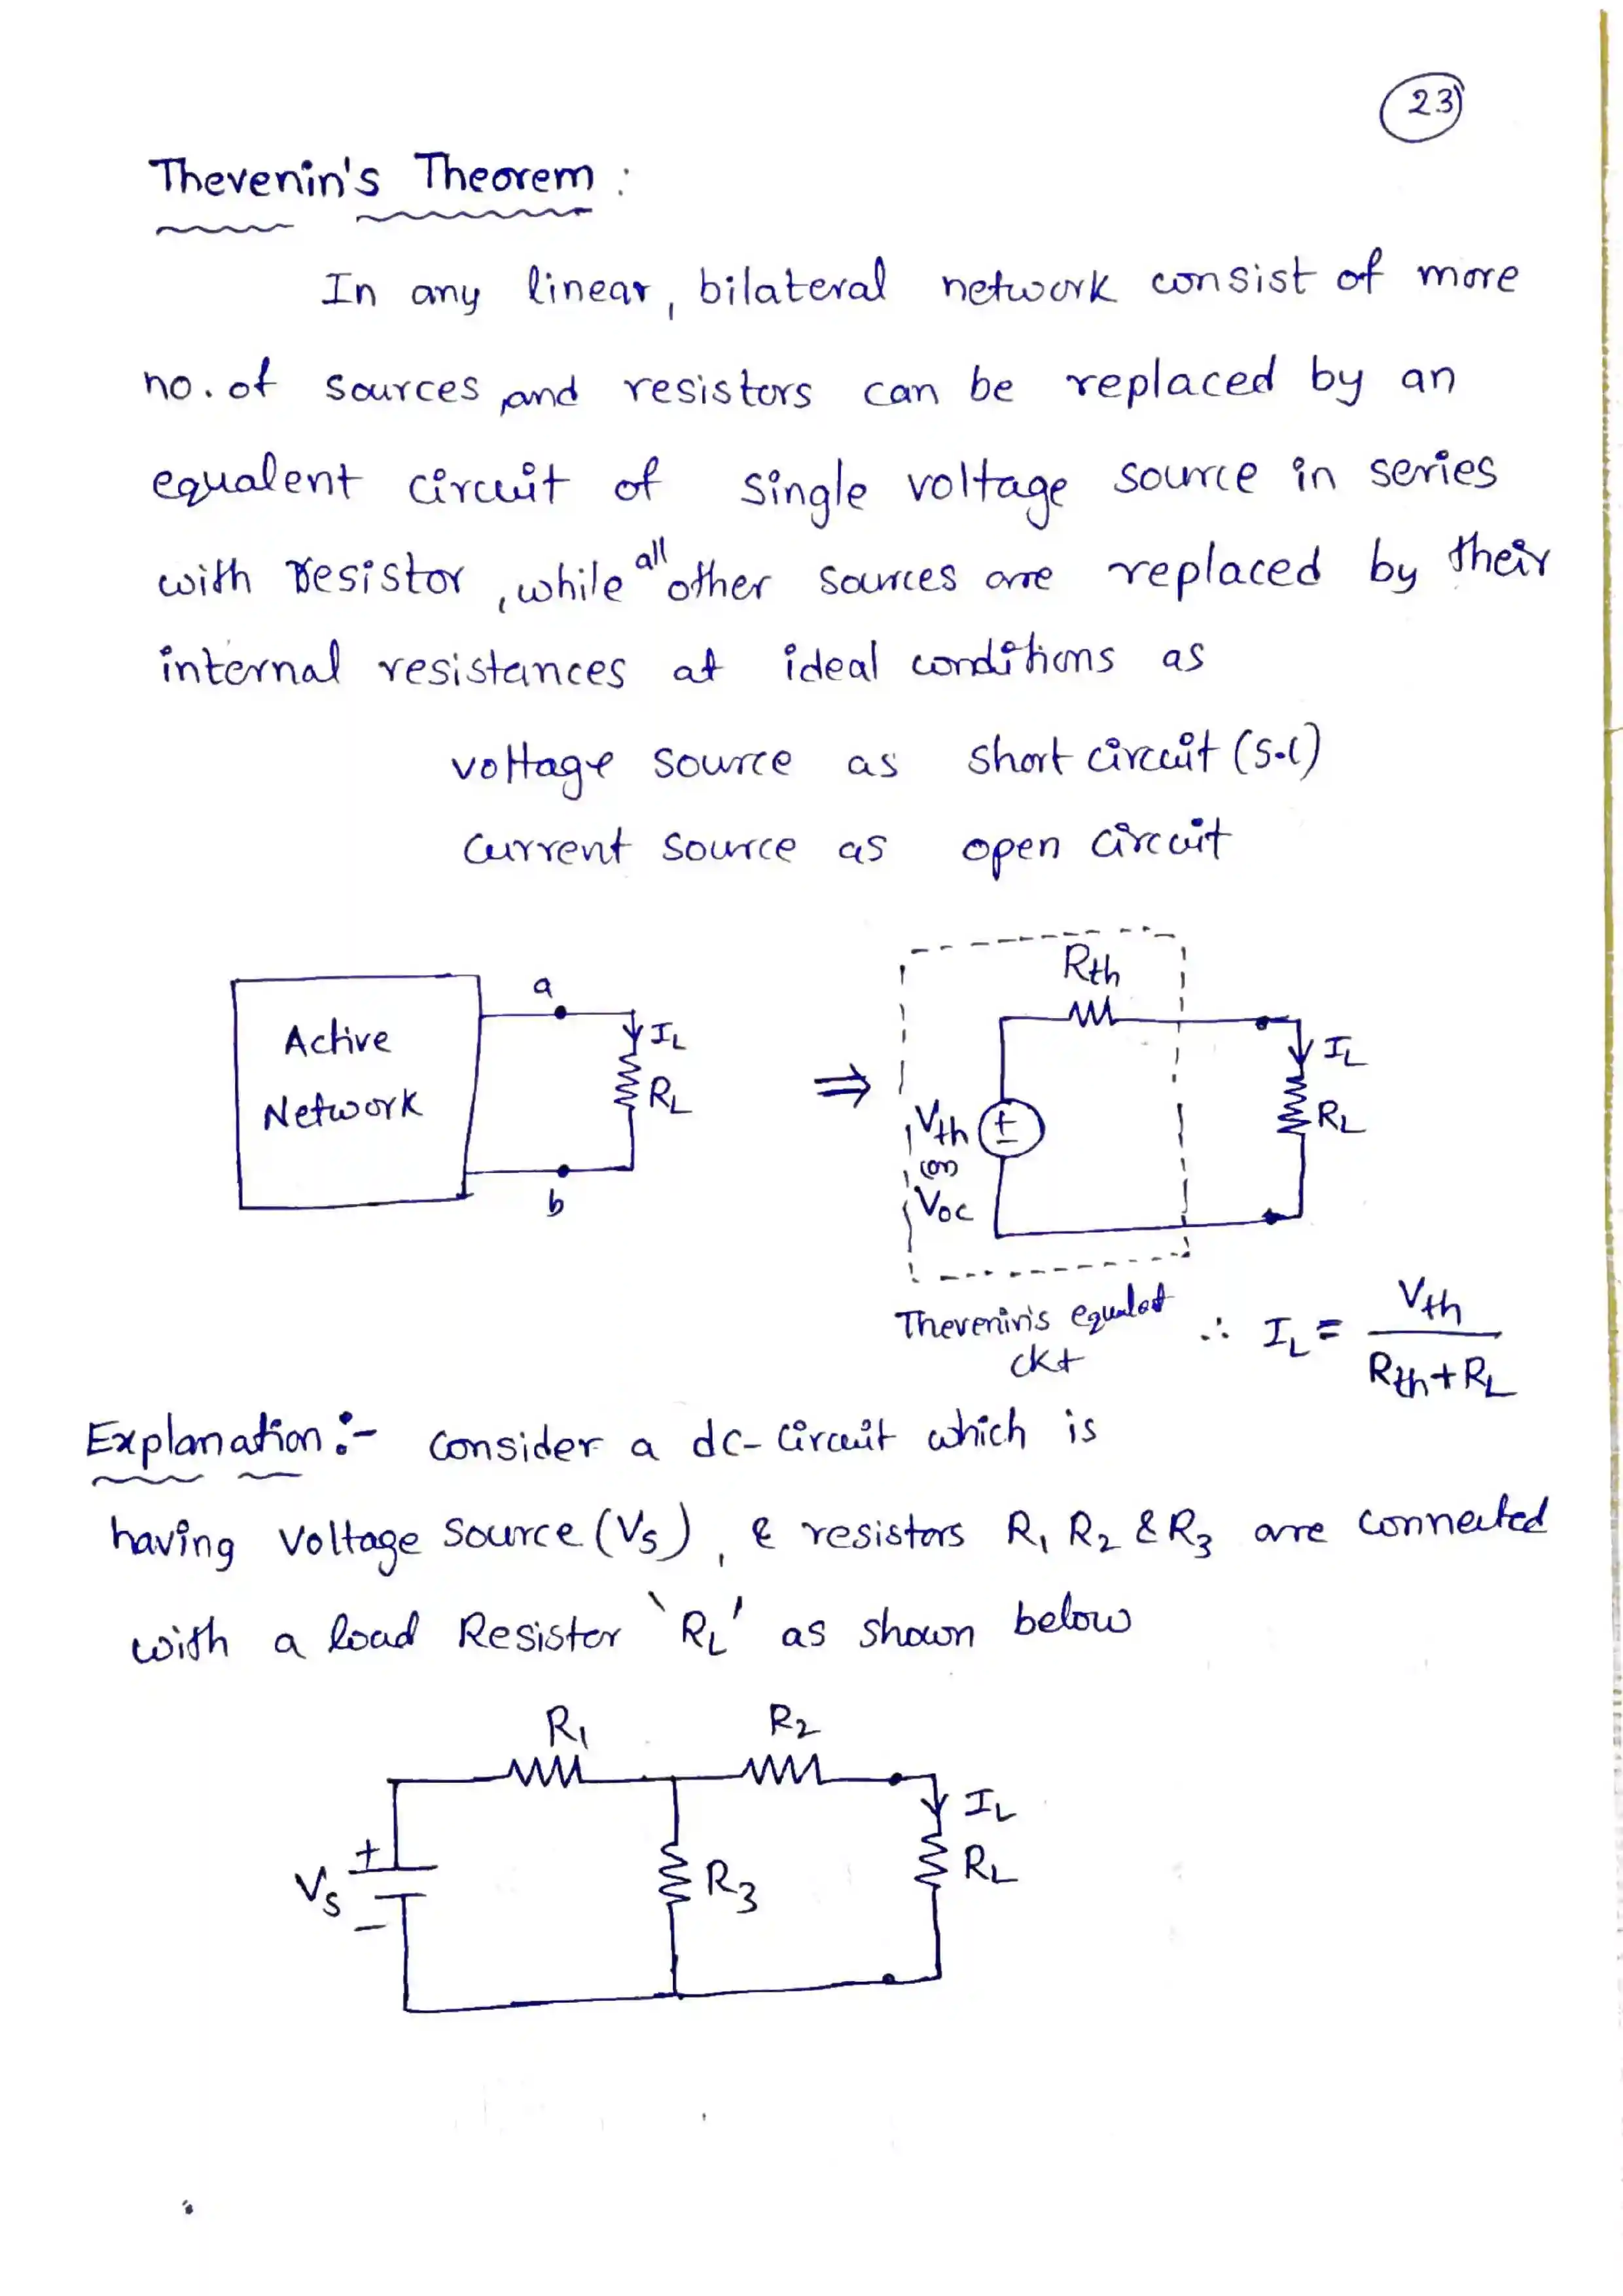 23
Thevenin's Theorem :
In any linear, bilateral network consist of more
no. of sources and resistors can be replaced by an
equalent circuit of single voltage source in series
with resistor, while all other sources are replaced by their
internal resistances at ideal conditions as
voltage source as short circuit (S.C)
Current source as open circuit
Active
Network
a
IL
RL
b
⇒
Rth
Vth
(or)
Voc
±
IL
RL
Thevenin's equalet
ckt
∴ IL = Vth / Rth+RL
Explanation :- consider a dc-circuit which is
having voltage source (Vs), & resistors R1 R2 & R3 are connected
with a load Resistor `RL' as shown below
R1 R2
IL
RL
R3
+
Vs
−